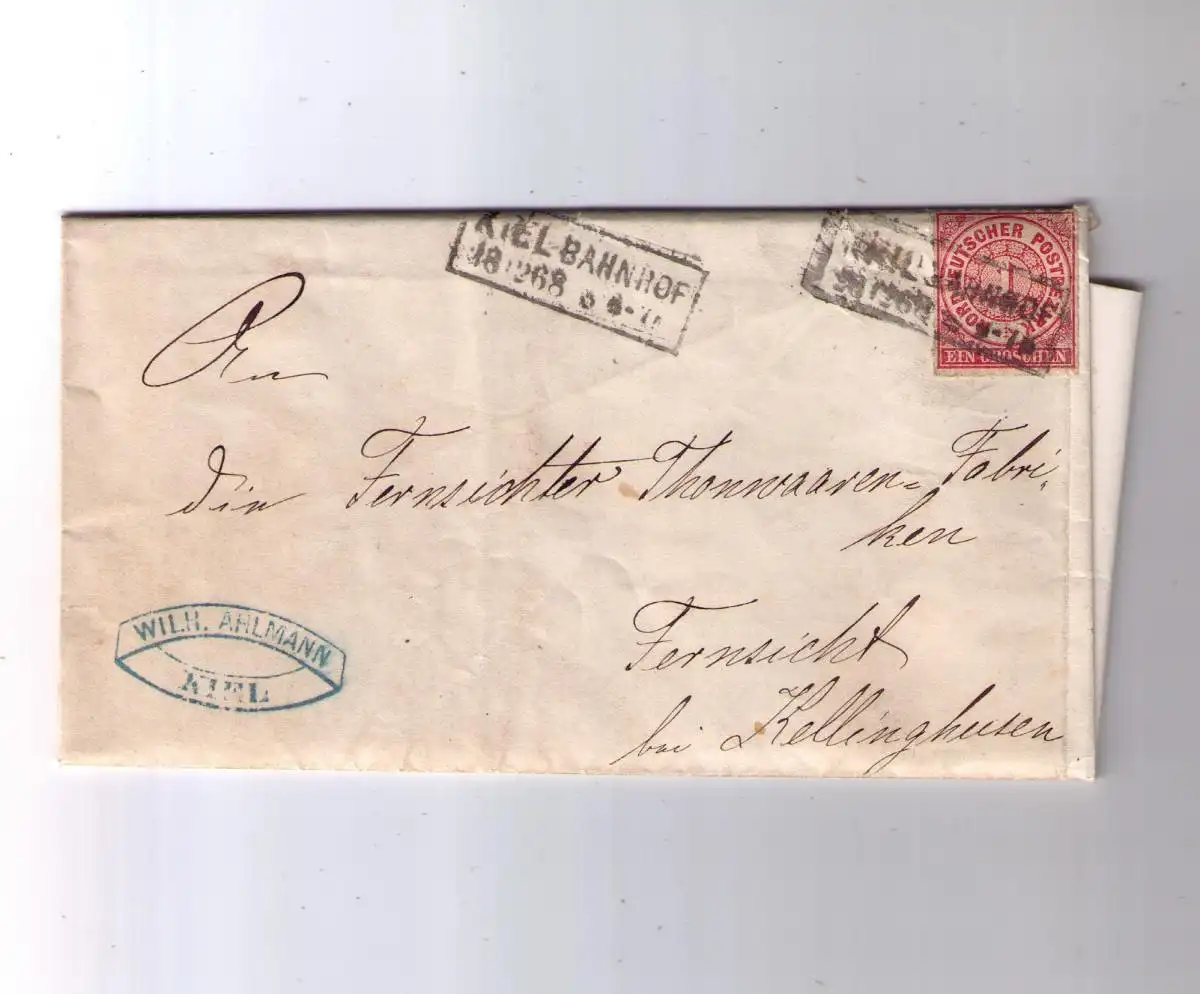 KIEL BAHNHOF
18 12 68
NORDDEUTSCHER POSTBEZIRK
1
EIN GROSCHEN
An
die Fernsichter Thonwaaren=Fabri-
ken
Fernsicht
bei Kellinghusen
WILH. AHLMANN
KIEL